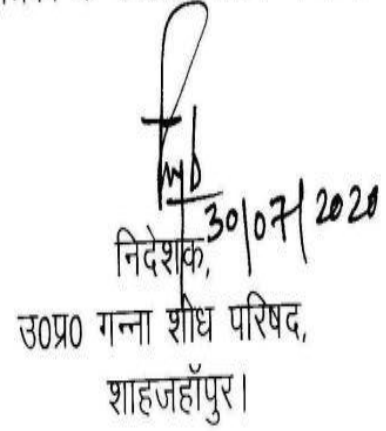 30/07/2020
निदेशक,
उ०प्र० गन्ना शोध परिषद,
शाहजहाँपुर।